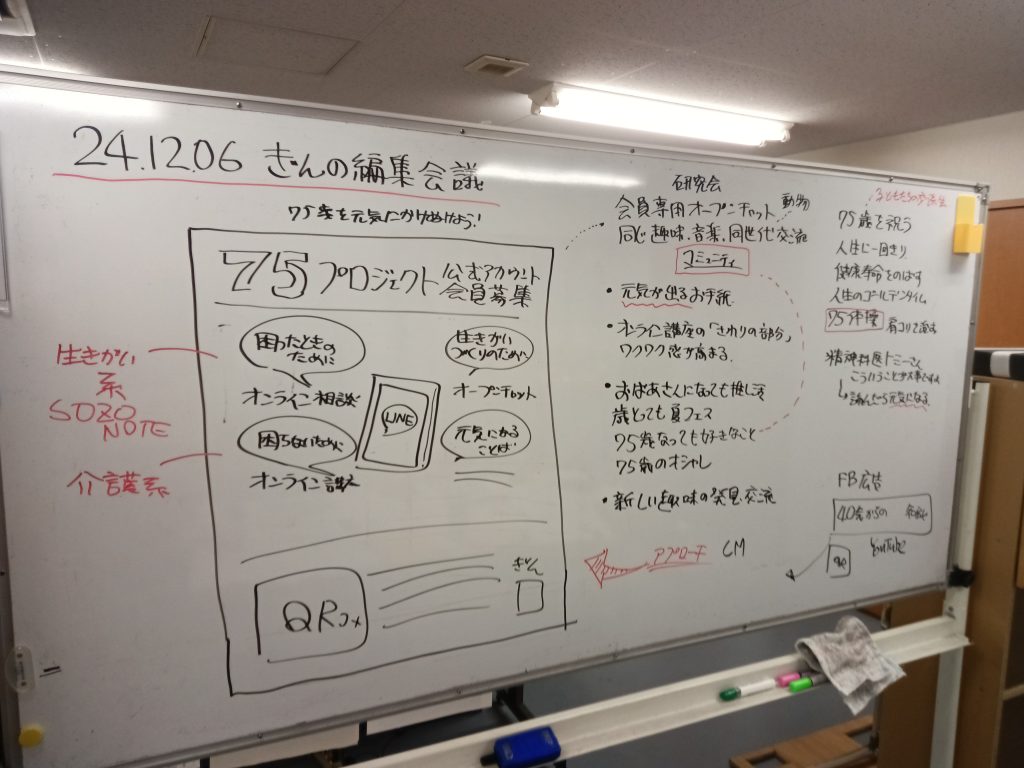 24.12.06 ぎんの編集会議
75歳を元気にかけぬけよう!
75プロジェクト
公式アカウント
会員募集
困ったときの
ために
オンライン相談
生きがい
づくりのために
オープンチャット
LINE
困らないために
オンライン講座
元気になる
ことば
QRコード
ぎん
生きがい
系
SOZO
NOTE
介護系
研究会
会員専用オープンチャット
動物
同じ趣味、音楽、同世代交流
コミュニティ
・元気が出るお手紙
・オンライン講座の「さわりの部分」
ワクワク感が高まる
・おばあさんになっても推し活
歳とっても夏フェス
75歳なっても好きなこと
75歳のオシャレ
・新しい趣味の発見、交流
アプローチ
CM
75歳を祝う
人生に一回きり
健康寿命をのばす
人生のゴールデンタイム
75体操
肩コリて治す
精神科医トミーさん
こういうことが大事ですよ
読んだら元気になる
FB広告
40歳からの
YouTube